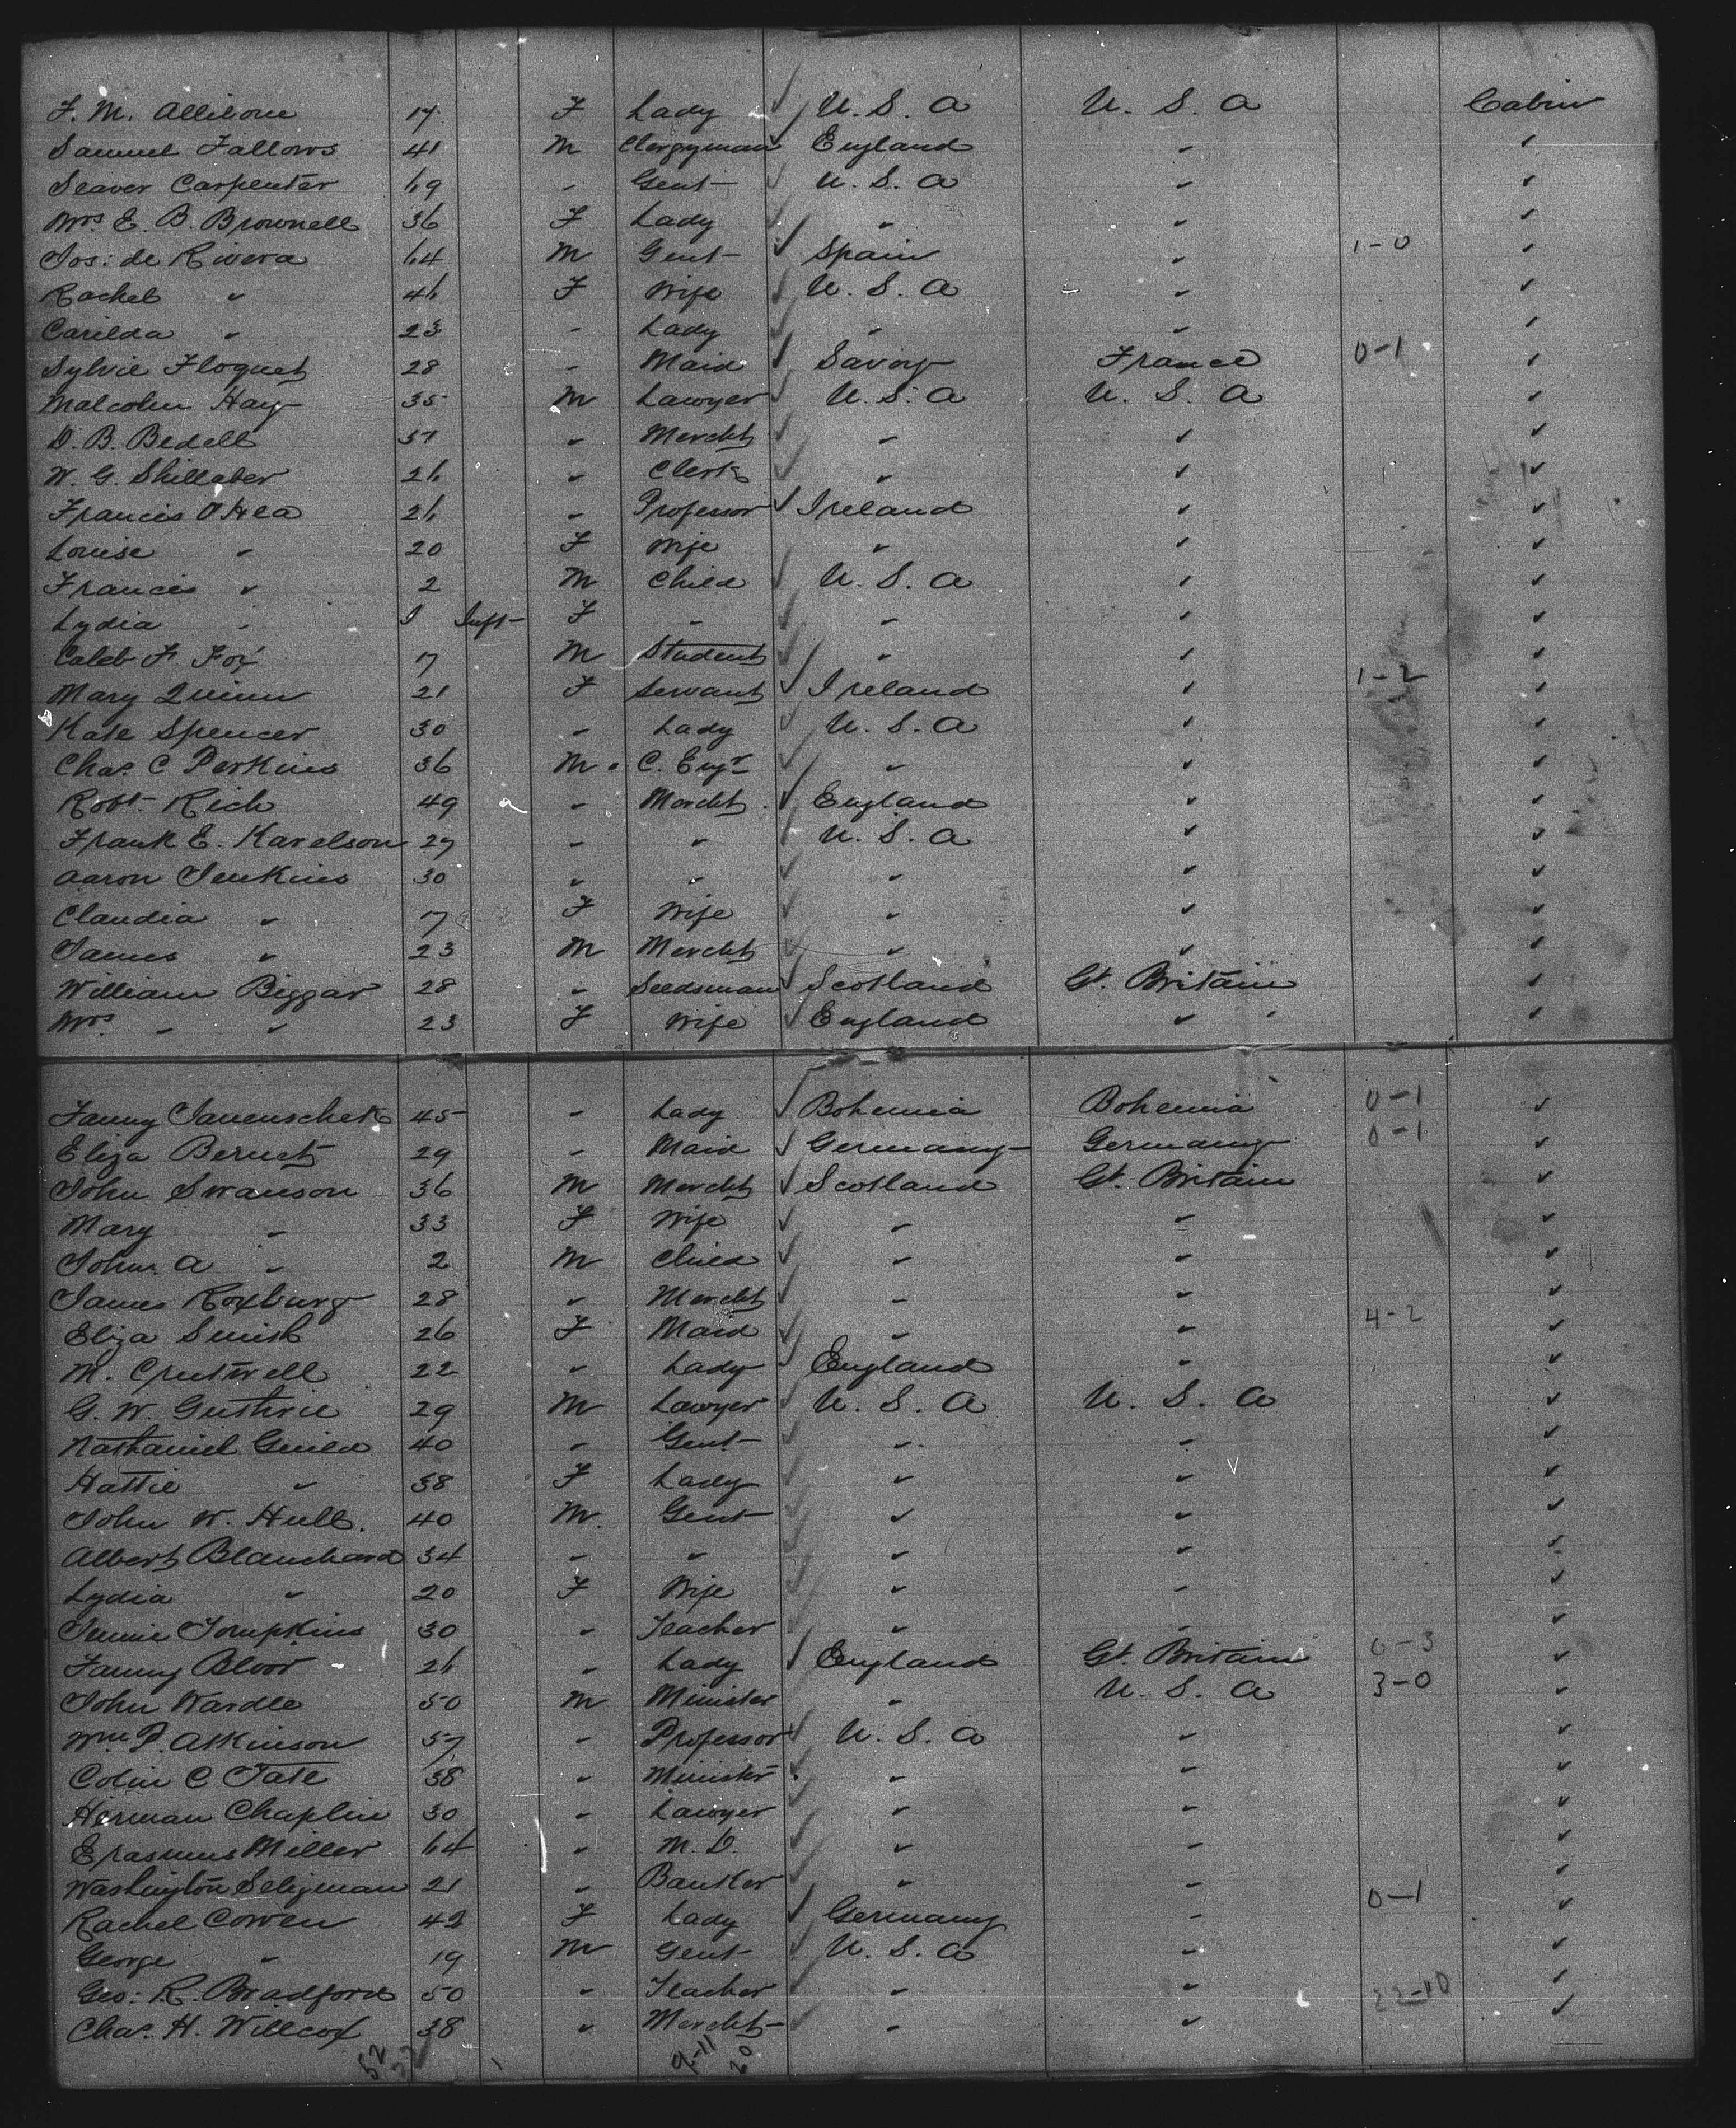 F. M. Allibone 17 F Lady ✓ U. S. A U. S. A Cabin
Samuel Fallows 41 M Clergyman ✓ England " "
Seaver Carpenter 69 " Gent ✓ U. S. A " "
Mrs E. B. Brownell 36 F Lady ✓ " " "
Jos: de Rivera 64 M Gent ✓ Spain " 1-0 "
Rachel " 46 F Wife ✓ U. S. A " "
Carilda " 23 " Lady ✓ " " "
Sylvie Floquet 28 " Maid ✓ Savoy France 0-1 "
Malcolm Hay 35 M Lawyer ✓ U. S. A U. S. A "
D. B. Bedell 57 " Mercht ✓ " " "
W. G. Shillaber 26 " Clerk ✓ " " "
Francis O'Hea 26 " Professor ✓ Ireland " "
Louise " 20 F Wife " " "
Francis " 2 M Child ✓ U. S. A " "
Lydia " Inft F " ✓ " " "
Caleb F Fox 17 M Student ✓ " " "
Mary Quinn 21 F Servant ✓ Ireland " 1-2 "
Kate Spencer 30 " Lady ✓ U. S. A " "
Chas. C Perkins 36 M C. Engr ✓ " " "
Robt Rich 49 " Mercht ✓ England " "
Frank E. Karelson 27 " " U. S. A " "
Aaron Jenkins 30 " " ✓ " " "
Claudia " 17 F Wife ✓ " " "
James " 23 M Mercht ✓ " " "
William Biggar 28 " Seedsman ✓ Scotland Gt. Britain "
Mrs " " 23 F Wife ✓ England " "
Fanny Janenschek 45 " Lady ✓ Bohemia Bohemia 0-1 "
Eliza Bernet 29 " Maid ✓ Germany Germany 0-1 "
John Swanson 36 M Mercht ✓ Scotland Gt. Britain "
Mary " 33 F Wife ✓ " " "
John. A " 2 M Child ✓ " " "
James Roxburg 28 " Mercht ✓ " " "
Eliza Smith 26 F Maid ✓ " " 4-2 "
M. Crutwell 22 " Lady ✓ England " "
G. W. Guthrie 29 M Lawyer ✓ U. S. A U. S. A "
Nathaniel Guild 40 " Gent ✓ " " "
Hattie " 38 F Lady ✓ " " "
John W. Hull. 40 M. Gent ✓ " " "
Albert Blanchard 34 " " ✓ " " "
Lydia " 20 F Wife ✓ " " "
Jennie Tompkins 30 " Teacher ✓ " " "
Fanny Bloor 26 " Lady ✓ England Gt. Britain 0-3 "
John Wardle 50 M Minister " U. S. A 3-0 "
Wm P. Atkinson 57 " Professor ✓ U. S. A " "
Colin C Tate 38 " Minister " " "
Herman Chaplin 30 " Lawyer ✓ " " "
Erasmus Miller 64 " M. D. ✓ " " "
Washington Seligman 21 " Banker ✓ " " "
Rachel Cowen 42 F Lady ✓ Germany " 0-1 "
George " 19 M Gent ✓ U. S. A " "
Geo: R. Bradford 50 " Teacher ✓ " " 22-10 "
Chas. H. Willcox 38 " Mercht ✓ " " "
52 9-11
20